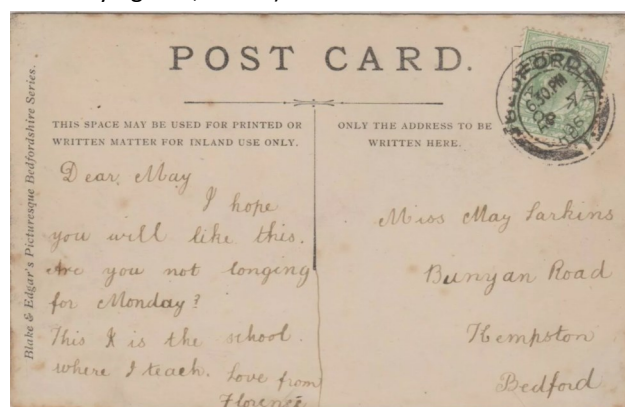 POST CARD.
Blake & Edgar's Picturesque Bedfordshire Series.
THIS SPACE MAY BE USED FOR PRINTED OR
WRITTEN MATTER FOR INLAND USE ONLY.
ONLY THE ADDRESS TO BE
WRITTEN HERE.
BEDFORD
6.30 PM
Dear May
I hope
you will like this.
Are you not longing
for Monday?
This X is the school
where I teach. Love from
Florence
Miss May Larkins
Bunyan Road
Kempston
Bedford